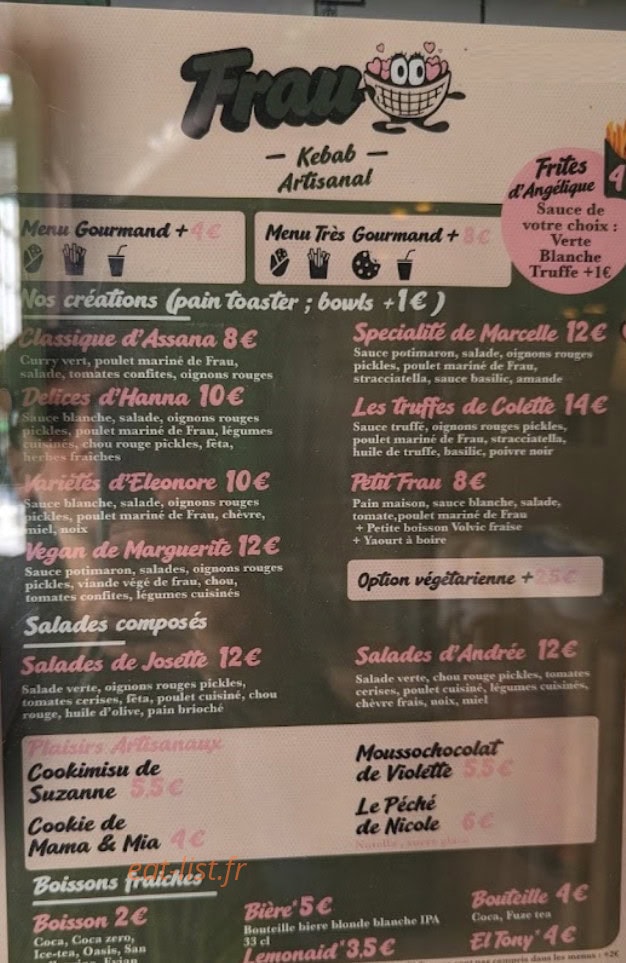 Frau
— Kebab —
Artisanal
Frites
d'Angélique
4
Sauce de
votre choix :
Verte
Blanche
Truffe +1€
Menu Gourmand + 4€
Menu Très Gourmand + 8€
Nos créations (pain toaster ; bowls +1€ )
Classique d'Assana 8€
Curry vert, poulet mariné de Frau,
salade, tomates confites, oignons rouges
Delices d'Hanna 10€
Sauce blanche, salade, oignons rouges
pickles, poulet mariné de Frau, légumes
cuisinés, chou rouge pickles, fêta,
herbes fraîches
Variétés d'Eleonore 10€
Sauce blanche, salade, oignons rouges
pickles, poulet mariné de Frau, chèvre,
miel, noix
Vegan de Marguerite 12€
Sauce potimaron, salades, oignons rouges
pickles, viande végé de frau, chou,
tomates confites, légumes cuisinés
Specialité de Marcelle 12€
Sauce potimaron, salade, oignons rouges
pickles, poulet mariné de Frau,
stracciatella, sauce basilic, amande
Les truffes de Colette 14€
Sauce truffe, oignons rouges pickles,
poulet mariné de Frau, stracciatella,
huile de truffe, basilic, poivre noir
Petit Frau 8€
Pain maison, sauce blanche, salade,
tomate,poulet mariné de Frau
+ Petite boisson Volvic fraise
+ Yaourt à boire
Option végétarienne +
Salades composés
Salades de Josette 12€
Salade verte, oignons rouges pickles,
tomates cerises, fêta, poulet cuisiné, chou
rouge, huile d'olive, pain brioché
Salades d'Andrée 12€
Salade verte, chou rouge pickles, tomates
cerises, poulet cuisiné, légumes cuisinés,
chèvre frais, noix, miel
Plaisirs Artisanaux
Cookimisu de
Suzanne 5,5€
Cookie de
Mama & Mia 4€
Moussochocolat
de Violette 5,5€
Le Péché
de Nicole 6€
eat-list.fr
Boissons fraîches
Boisson 2€
Coca, Coca zero,
Ice-tea, Oasis, San
Bière* 5€
Bouteille biere blonde blanche IPA
33 cl
Lemonaid* 3,5€
Bouteille 4€
Coca, Fuze tea
El Tony* 4€
compris dans les menus : +2€